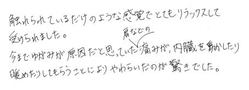 触れられているだけのような感覚でとてもリラックスして
受けられました。
肩などの
今までゆがみが原因だと思っていた痛みが、内臓を動かしたり
暖めたりしてもらうことによりやわらいだのが驚きでした。